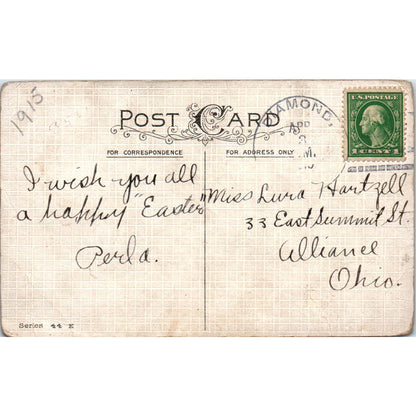 1915
POST CARD
FOR CORRESPONDENCE
FOR ADDRESS ONLY
DIAMOND,
APR
3
M.
U.S. POSTAGE
1 CENT 1
I wish you all
a happy "Easter"
Perla.
Miss Lura Hartzell
33 East Summit St.
Alliance
Ohio.
Series 44 E